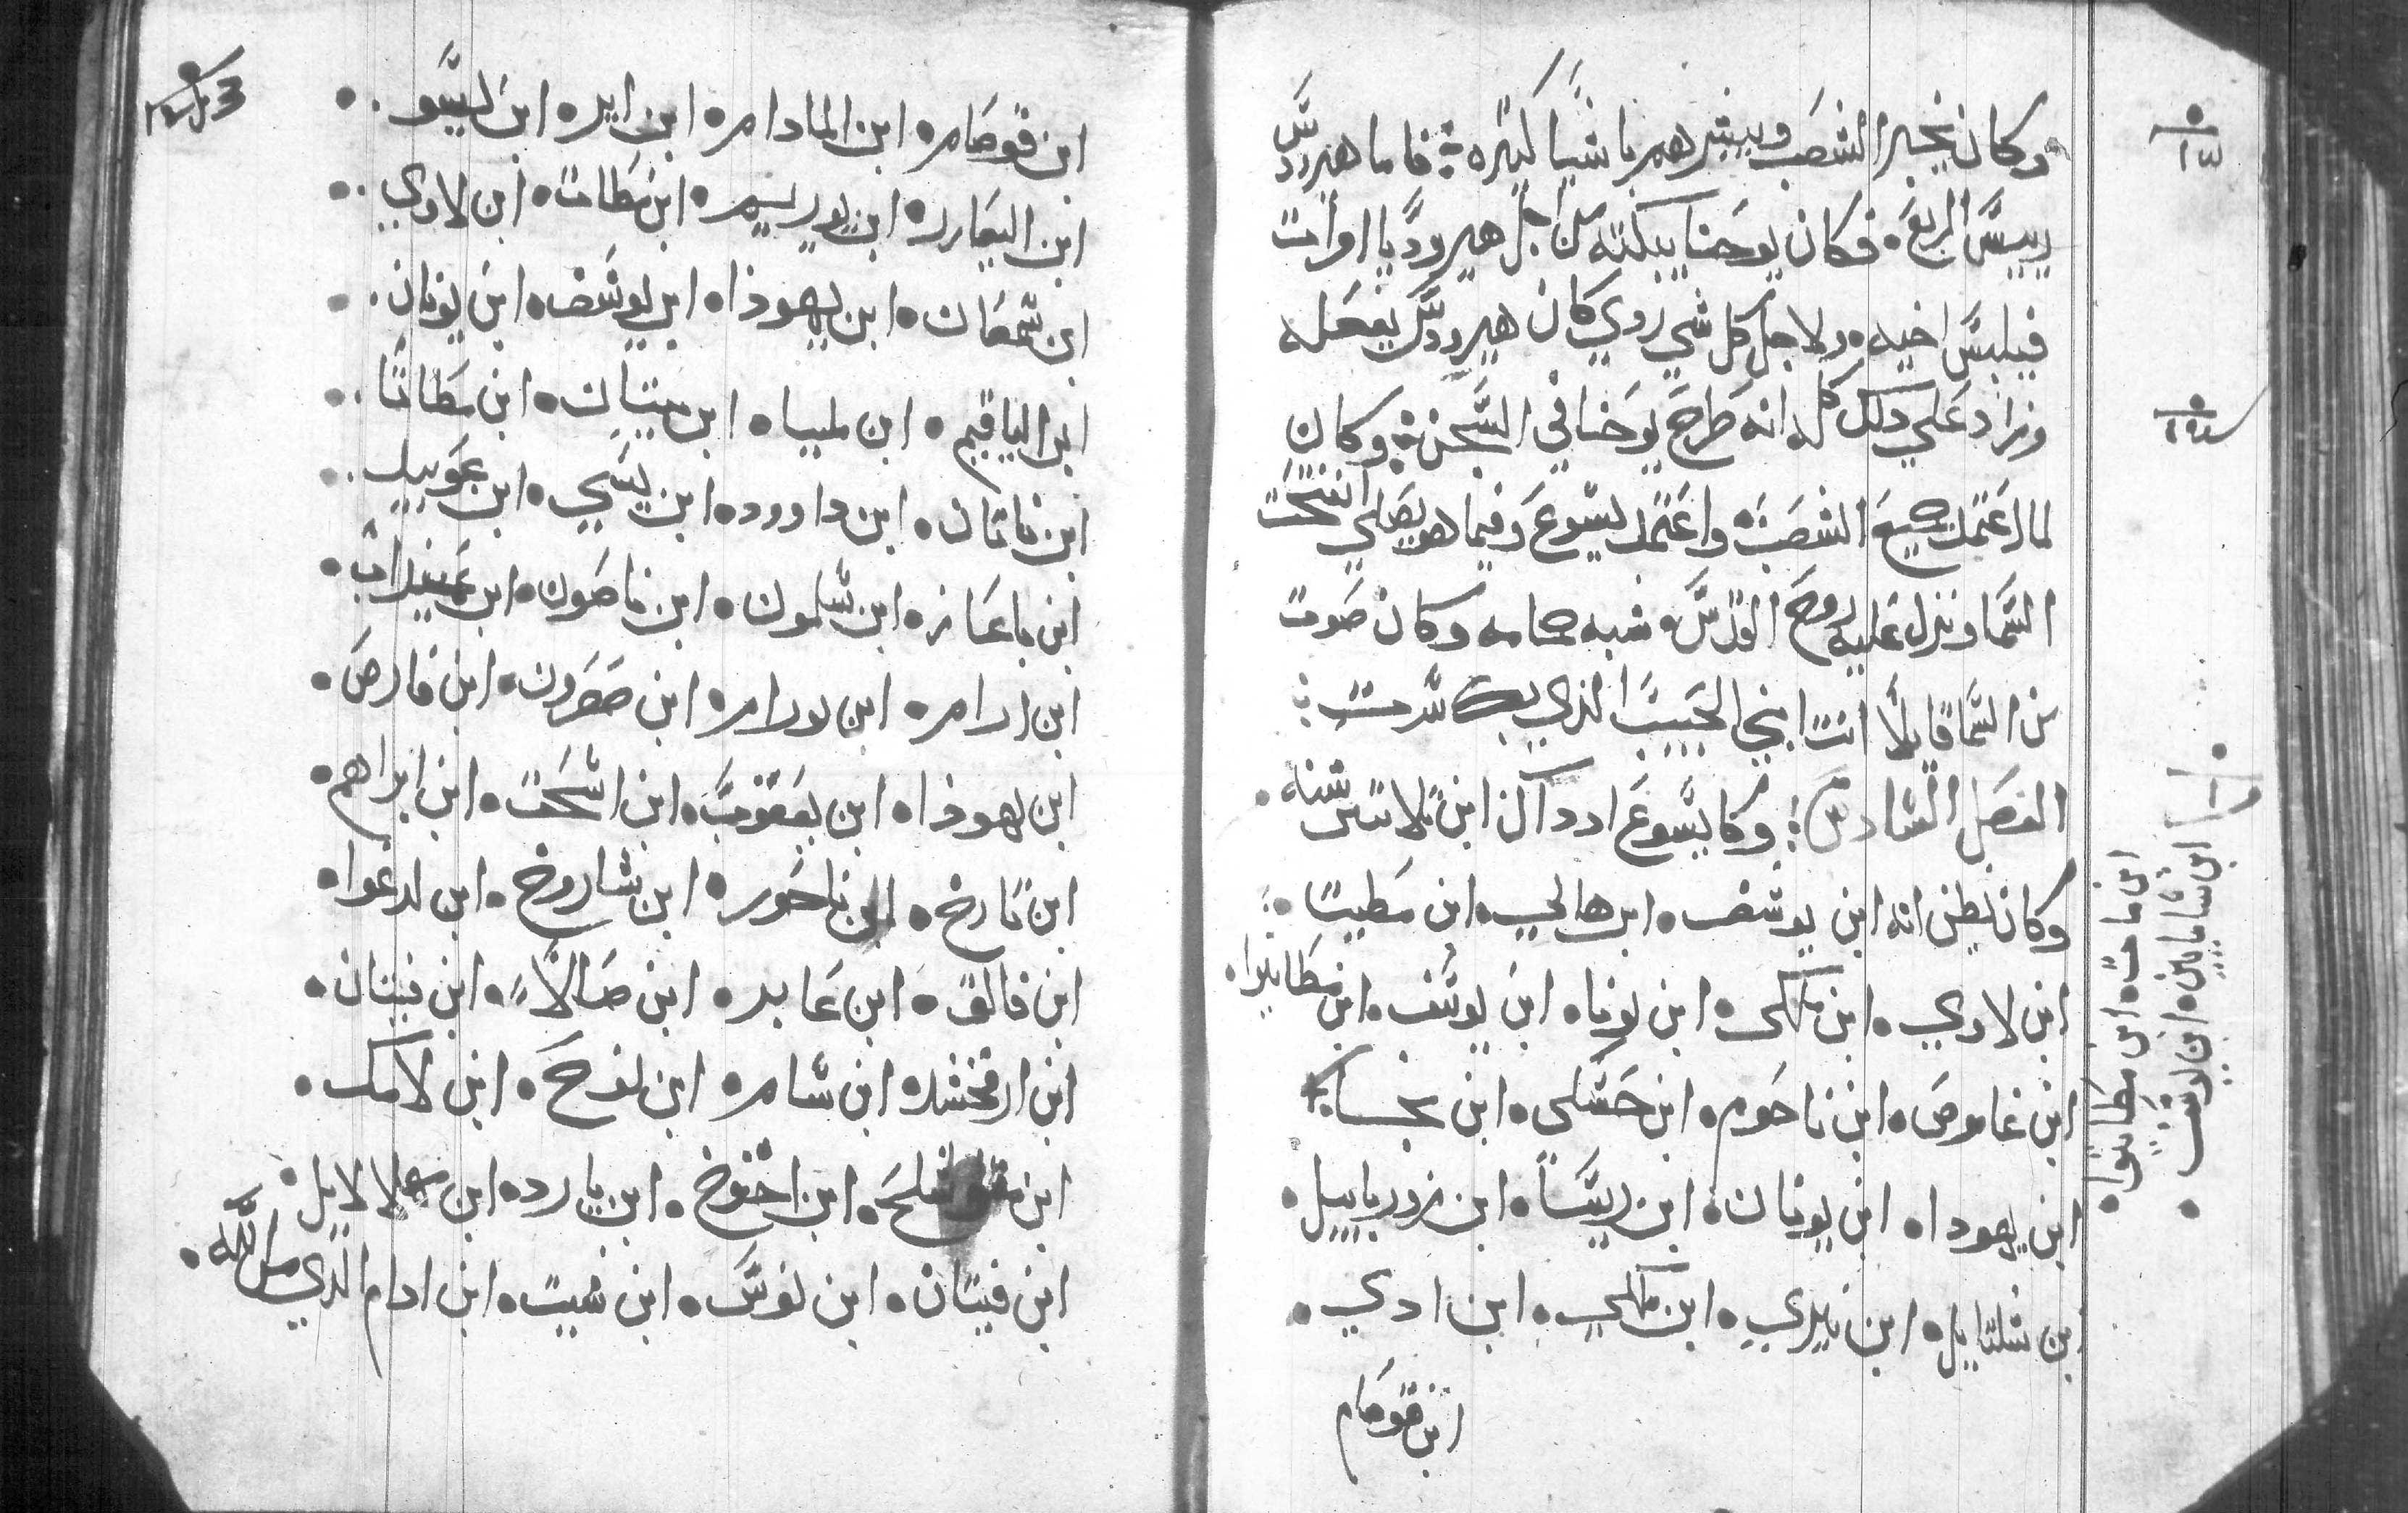 وكان يخبر الشعب ويبشرهم باشيا كثيره فاما هيرودس
رييس الربع وكان يوحنا يبكته من اجل هيروديا امرأت
فيلبس اخيه ولاجل كل شي ردي كان هيرودس يفعله
وزاد علي دلك كله انه طرح يوحنا في السجن وكان
لما اعتمد جميع الشعب واعتمد يسوع وفيما هو يصلي انفتحت
السما ونزل عليه روح القدس شبه حمامه وكان صوت
من السما قايلاً انت ابني الحبيب الذي بك سررت
الفصل السادس وكا يسوع ادداك ابن تلاتين سنه
وكان يظن انه ابن يوسف ابن هالي ابن مطيتا
ابن لاوي ابن ملكي ابن يونا ابن يوسف ابن مطاتيوا
ابن غاموص ابن ناحوم ابن حسلي ابن نجسا
ابن يهودا ابن يونان ابن ريسا ابن زوربابيل
ابن شلتاييل ابن نيري ابن ملكي ابن ادي
ابن قوصام
ابن ماحت ابن مطاتيوا
ابن شامايين ابن يوسف
ابن قوصام ابن المادام ابن اير ابن يسو
ابن اليعازر ابن يوريم ابن مطات ابن لاوي
ابن شمعان ابن يهوذا ابن يوسف ابن يونان
ابن الياقيم ابن مليا ابن مينان ابن مطاتا
ابن ناتان ابن داوود ابن يسي ابن عوبيل
ابن باعاز ابن سلمون ابن ناصون ابن عميناداب
ابن ارام ابن يورام ابن حصرون ابن فارص
ابن يهوذا ابن يعقوب ابن اسحت ابن ابراهم
ابن تارخ ابن ناحور ابن شاروخ ابن ارغوا
ابن فالق ابن عابر ابن صالا ابن قينان
ابن ارفخشد ابن سام ابن نوح ابن لامك
ابن متوشلح ابن اخنوخ ابن يارد ابن مهلالايل
ابن قينان ابن نوس ابن شيت ابن ادام الذي من الله